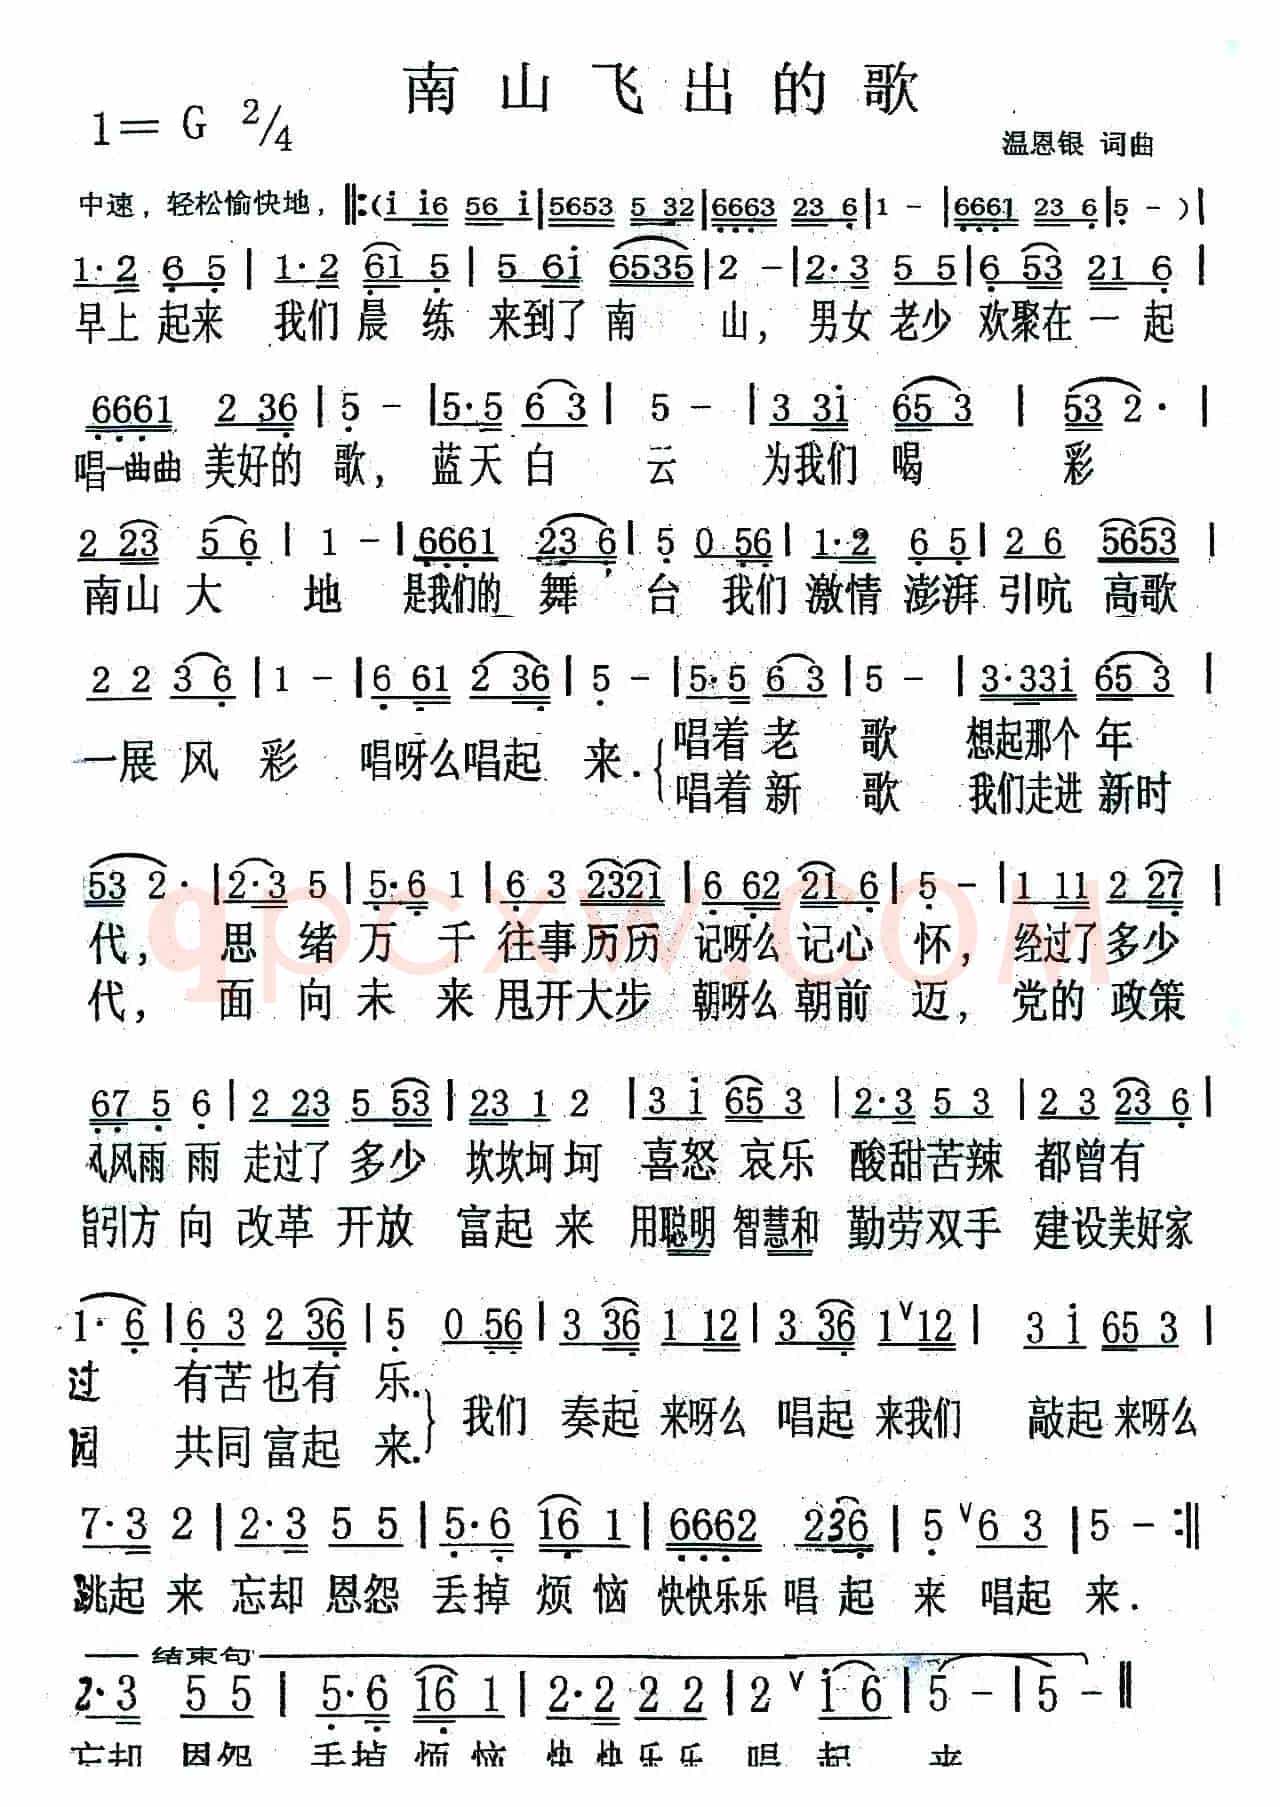 南山飞出的歌
1=G 2/4
温恩银 词曲
中速，轻松愉快地，‖:(i i6 56 i|5653 5 32|6663 23 6|1 －|6661 23 6|5 －)|
1·2 6 5|1·2 61 5|5 6i 6535|2 －|2·3 5 5|6 53 21 6|
早上 起来 我们 晨 练 来到了 南 山，男女 老少 欢聚在一起
6661 2 36|5 －|5·5 6 3|5 －|3 3i 65 3|53 2·|
唱一曲曲 美好的 歌，蓝天 白 云 为我们 喝 彩
2 23 5 6|1 －|6661 23 6|5 0 56|1·2 6 5|2 6 5653|
南山 大 地 是我们的 舞 台 我们 激情 澎湃 引吭 高歌
2 2 3 6|1 －|6 61 2 36|5 －|5·5 6 3|5 －|3·33i 65 3|
一展 风 彩 唱呀么唱起 来.
唱着 老 歌 想起那个 年
唱着 新 歌 我们走进 新时
53 2·|2·3 5|5·6 1|6 3 2321|6 62 21 6|5 －|1 11 2 27|
qpcxw.COM
代，思 绪 万 千 往事 历历 记呀么 记心 怀，经过了 多少
代，面 向 未 来 甩开 大步 朝呀么 朝前 迈，党的 政策
67 5 6|2 23 5 53|23 1 2|3 i 65 3|2·3 5 3|2 3 23 6|
风风雨 雨 走过了 多少 坎坎坷 坷 喜怒 哀乐 酸甜苦辣 都曾有
指引方 向 改革 开放 富起 来 用聪明 智慧和 勤劳双手 建设美好家
1· 6|6 3 2 36|5 0 56|3 36 1 12|3 36 1∨12|3 i 65 3|
过 有苦也有 乐.
园 共同富起 来.
我们 奏起 来呀么 唱起 来我们 敲起 来呀么
7·3 2|2·3 5 5|5·6 16 1|6662 236|5 ∨6 3|5 －:‖
跳起 来 忘却 恩怨 丢掉 烦恼 快快乐乐 唱起 来 唱起 来.
结束句
2·3 5 5|5·6 16 1|2·2 2 2|2 ∨i 6|5 －|5 －‖
忘却 恩怨 丢掉 烦恼 快快乐乐 唱起 来